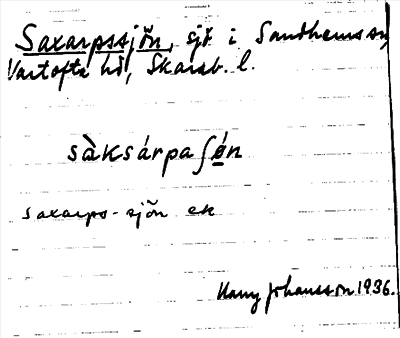 Saxarpssjön, sjö i Sandhems sn
Vartofta hd, Skarab. l.
sàksárpaʃǿn
saxarps-sjön ek
Harry Johansson 1936.